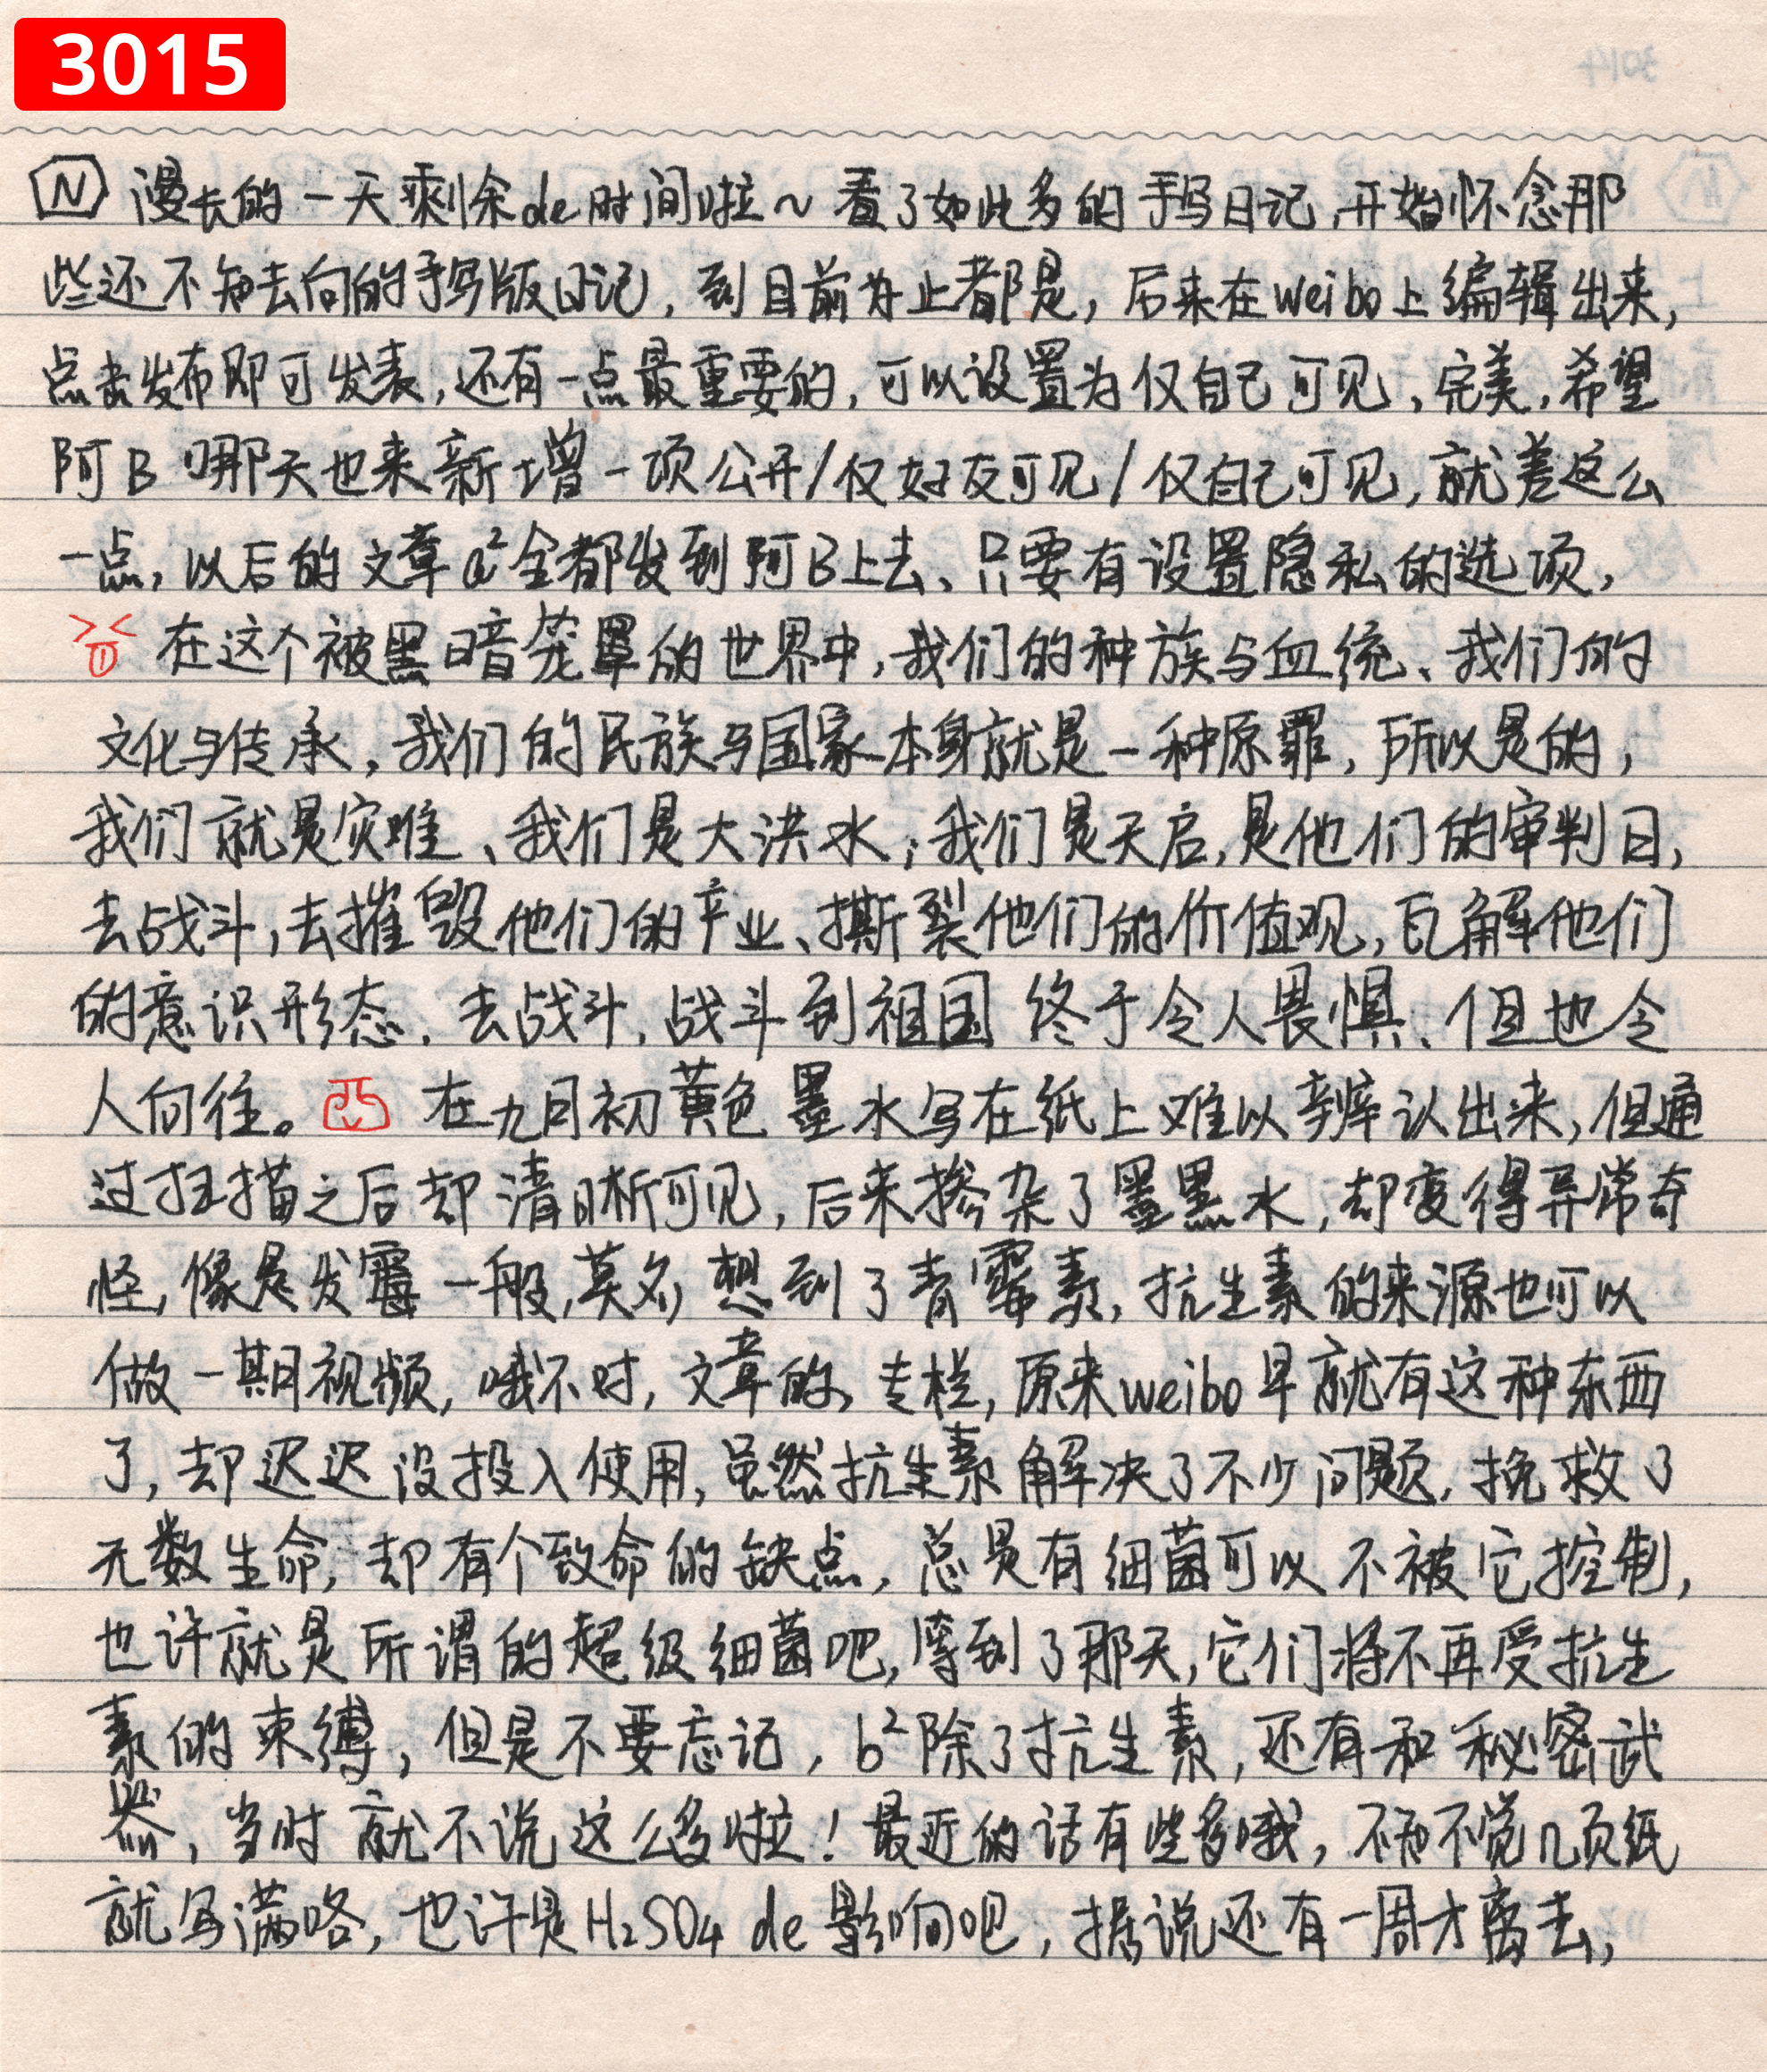 3015
N 漫长的一天剩余de时间啦~看了如此多的手写日记,开始怀念那
些还不知去向的手写版日记,到目前为止都是,后来在weibo上编辑出来,
点击发布即可发表,还有一点最重要的,可以设置为仅自己可见,完美,希望
阿B哪天也来新增一项公开/仅好友可见/仅自己可见,就差这么
一点,以后的文章a²全都发到阿B上去、只要有设置隐私的选项,
在这个被黑暗笼罩的世界中,我们的种族与血统、我们的
文化与传承,我们的民族与国家本身就是一种原罪,所以是的,
我们就是灾难、我们是大洪水;我们是天启,是他们的审判日,
去战斗,去摧毁他们的产业、撕裂他们的价值观,瓦解他们
的意识形态.去战斗,战斗到祖国终于令人畏惧、但也令
人向往。在九月初黄色墨水写在纸上难以辨认出来,但通
过扫描之后却清晰可见,后来掺杂了墨黑水,却变得异常奇
怪,像是发霉一般,莫名想到了青霉素,抗生素的来源也可以
做一期视频,哦不对,文章的,专栏,原来weibo早就有这种东西
了,却迟迟没投入使用,虽然抗生素解决了不少问题,挽救了
无数生命,却有个致命的缺点,总是有细菌可以不被它控制,
也许就是所谓的超级细菌吧,等到了那天,它们将不再受抗生
素的束缚,但是不要忘记,b²除了抗生素,还有和秘密武
器,当时就不说这么多啦!最近的话有些多哦,不知不觉几页纸
就写满咯,也许是H₂SO4 de影响吧,据说还有一周才离去,